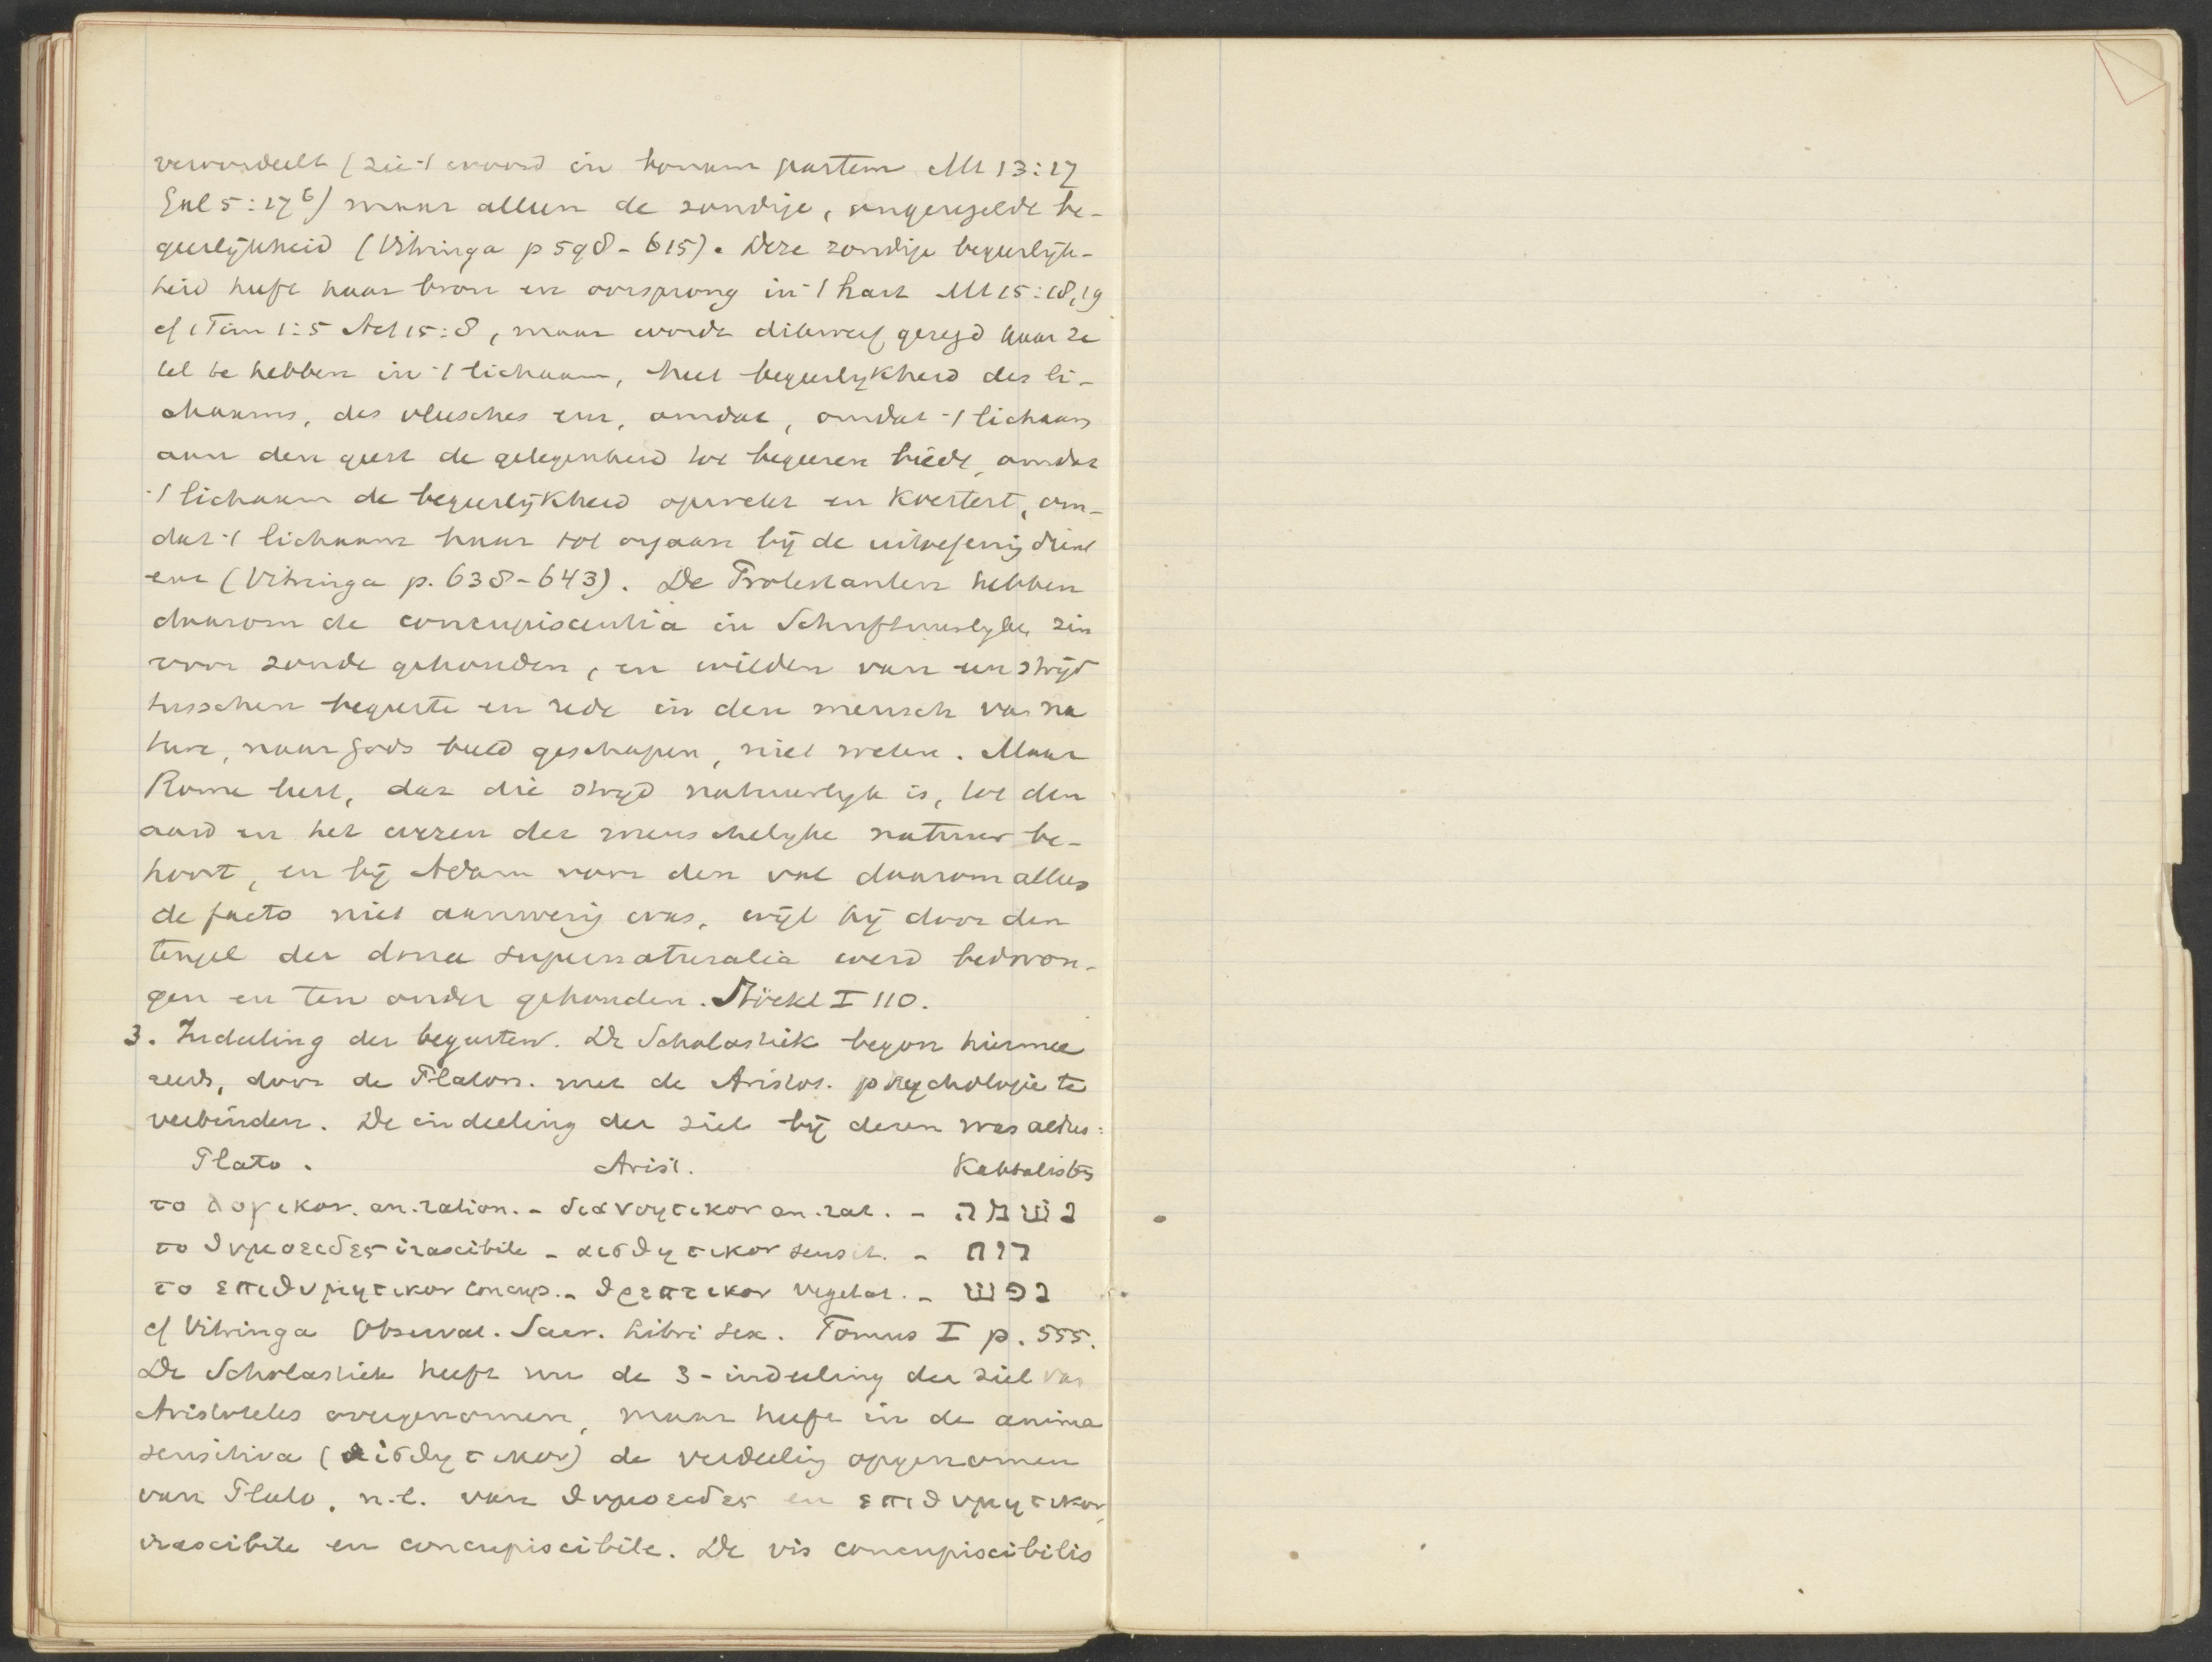 veroordeelt (zie 't woord in bonam partem Mt 13:17
Gal 5:17b) maar alleen de zondige, ongeregelde be-
geerlijkheid (Vitringa p 598-615). Deze zondige begeerlijk-
heid heeft haar bron en oorsprong in 't hart Mt 15:18,19
cf 1 Tim 1:5 Act 15:8, maar wordt dikwerf gezegd haar ze
tel te hebben in 't lichaam, heet begeerlykheid des li-
chaams, des vleesches enz, omdat, omdat 't lichaam
aan den geest de gelegenheid tot begeeren biedt, omdat
't lichaam de begeerlijkheid opwekt en koestert, om-
dat 't lichaam haar tot orgaan bij de uitoefening dient
enz (Vitringa p. 638-643). De Protestanten hebben
daarom de concupiscentia in Schriftuurlyke zin
voor zonde gehouden, en wilden van een strijd
tusschen begeerte en rede in den mensch van na
ture, naar Gods beeld geschapen, niet weten. Maar
Rome leert, dat die stryd natuurlyk is, tot den
aard en het wezen der menschelyke natuur be-
hoort, en bij Adam voor den val daarom alleen
de facto niet aanwezig was, wijl hij door den
teugel der dona supernaturalia werd bedwon-
gen en ten onder gehouden. Stöckl I 110.
3. Indeeling der begeerten. De Scholastiek begon hiermee
reeds, door de Platon. met de Aristot. psychologie te
verbinden. De indeeling der ziel bij dezen was aldus:
Plato. Arist. Kabbalisten
το λογικον. an. ration. - διανοητικον an. rat. - נשמה
το θυμοειδες irascibile - αισθητικον sensit. - רוח
το επιθυμητικον concup. - θρεπτικον vegetat. - נפש
cf Vitringa Observat. Sacr. Libri sex. Tomus I p. 555.
De Scholastiek heeft nu de 3-indeeling der ziel van
Aristoteles overgenomen, maar heeft in de anima
sensitiva (αισθητικον) de verdeeling opgenomen
van Plato, n.l. van θυμοειδες en επιθυμητικον,
irascibile en concupiscibile. De vis concupiscibilis